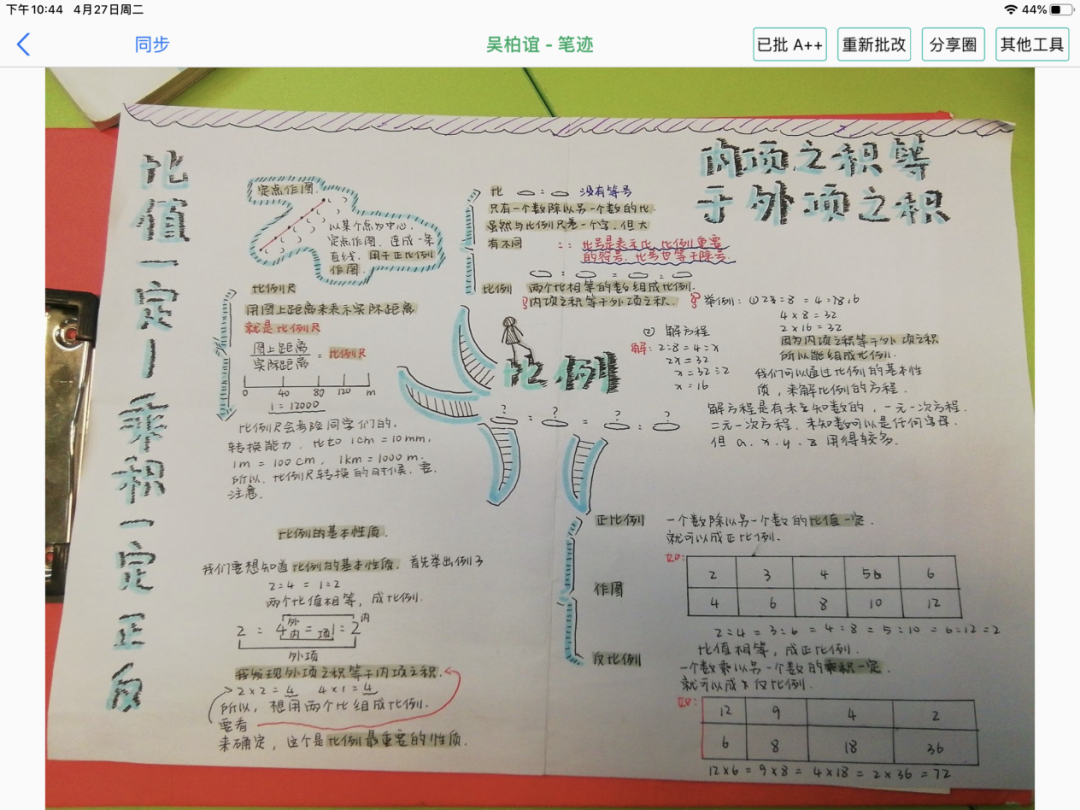 下午10:44 4月27日周二
44%
同步
吴柏谊 - 笔迹
已批 A++
重新批改
分享圈
其他工具
比值一定一乘积一定正反
内项之积等
于外项之积
定点作图.
以某个点为中心,
定点作图, 连成一条
直线, 用于正比例
作图.
比例尺
用图上距离来表示实际距离
就是比例尺
图上距离
实际距离
= 比例尺
0 40 80 120 m
1=12000
比例尺会考验同学们的,
转换能力, 比如 1cm = 10mm,
1m = 100 cm, 1km = 1000 m.
所以, 比例尺转换的时候, 要.
注意.
比例的基本性质.
我们要想知道比例的基本性质. 首先举出例子
2:4 = 1:2
两个比值相等, 成比例.
2 : 4 = 1 : 2
外
内 项
内
外项
我发现外项之积等于内项之积.
2×2 = 4 4×1 = 4
所以, 想用两个比组成比例.
要看
来确定, 这个是比例最重要的性质.
比 : 没有等号
只有一个数除以另一个数的比
虽然与比例只差一个字, 但大
有不同
: : 比号是表示比, 比例重要
的符号. 比号也等于除号.
: = :
比例 两个比相等的数组成比例.
内项之积等于外项之积.
比例
? ? ? ?
: = :
举例: ① 2:8 = 4:16
4×8=32
2×16=32
因为内项之积等于外项之积
所以能组成比例.
② 解方程
解: 2:8=4:x
2x=32
x=32÷2
x=16
我们可以通过比例的基本性
质, 来解比例的方程.
解方程是有未知数的, 一元一次方程.
二元一次方程. 未知数可以是任何字母.
但 a. x. y. z 用得较多.
正比例 一个数除以另一个数的比值一定.
就可以成正比例.
如:
2 3 4 5 6
4 6 8 10 12
作图
2:4 = 3:6 = 4:8 = 5:10 = 6:12 = 2
比值相等, 成正比例.
反比例 一个数乘以另一个数的乘积一定.
就可以成反比例.
如:
12 9 4 2
6 8 18 36
12×6 = 9×8 = 4×18 = 2×36 = 72